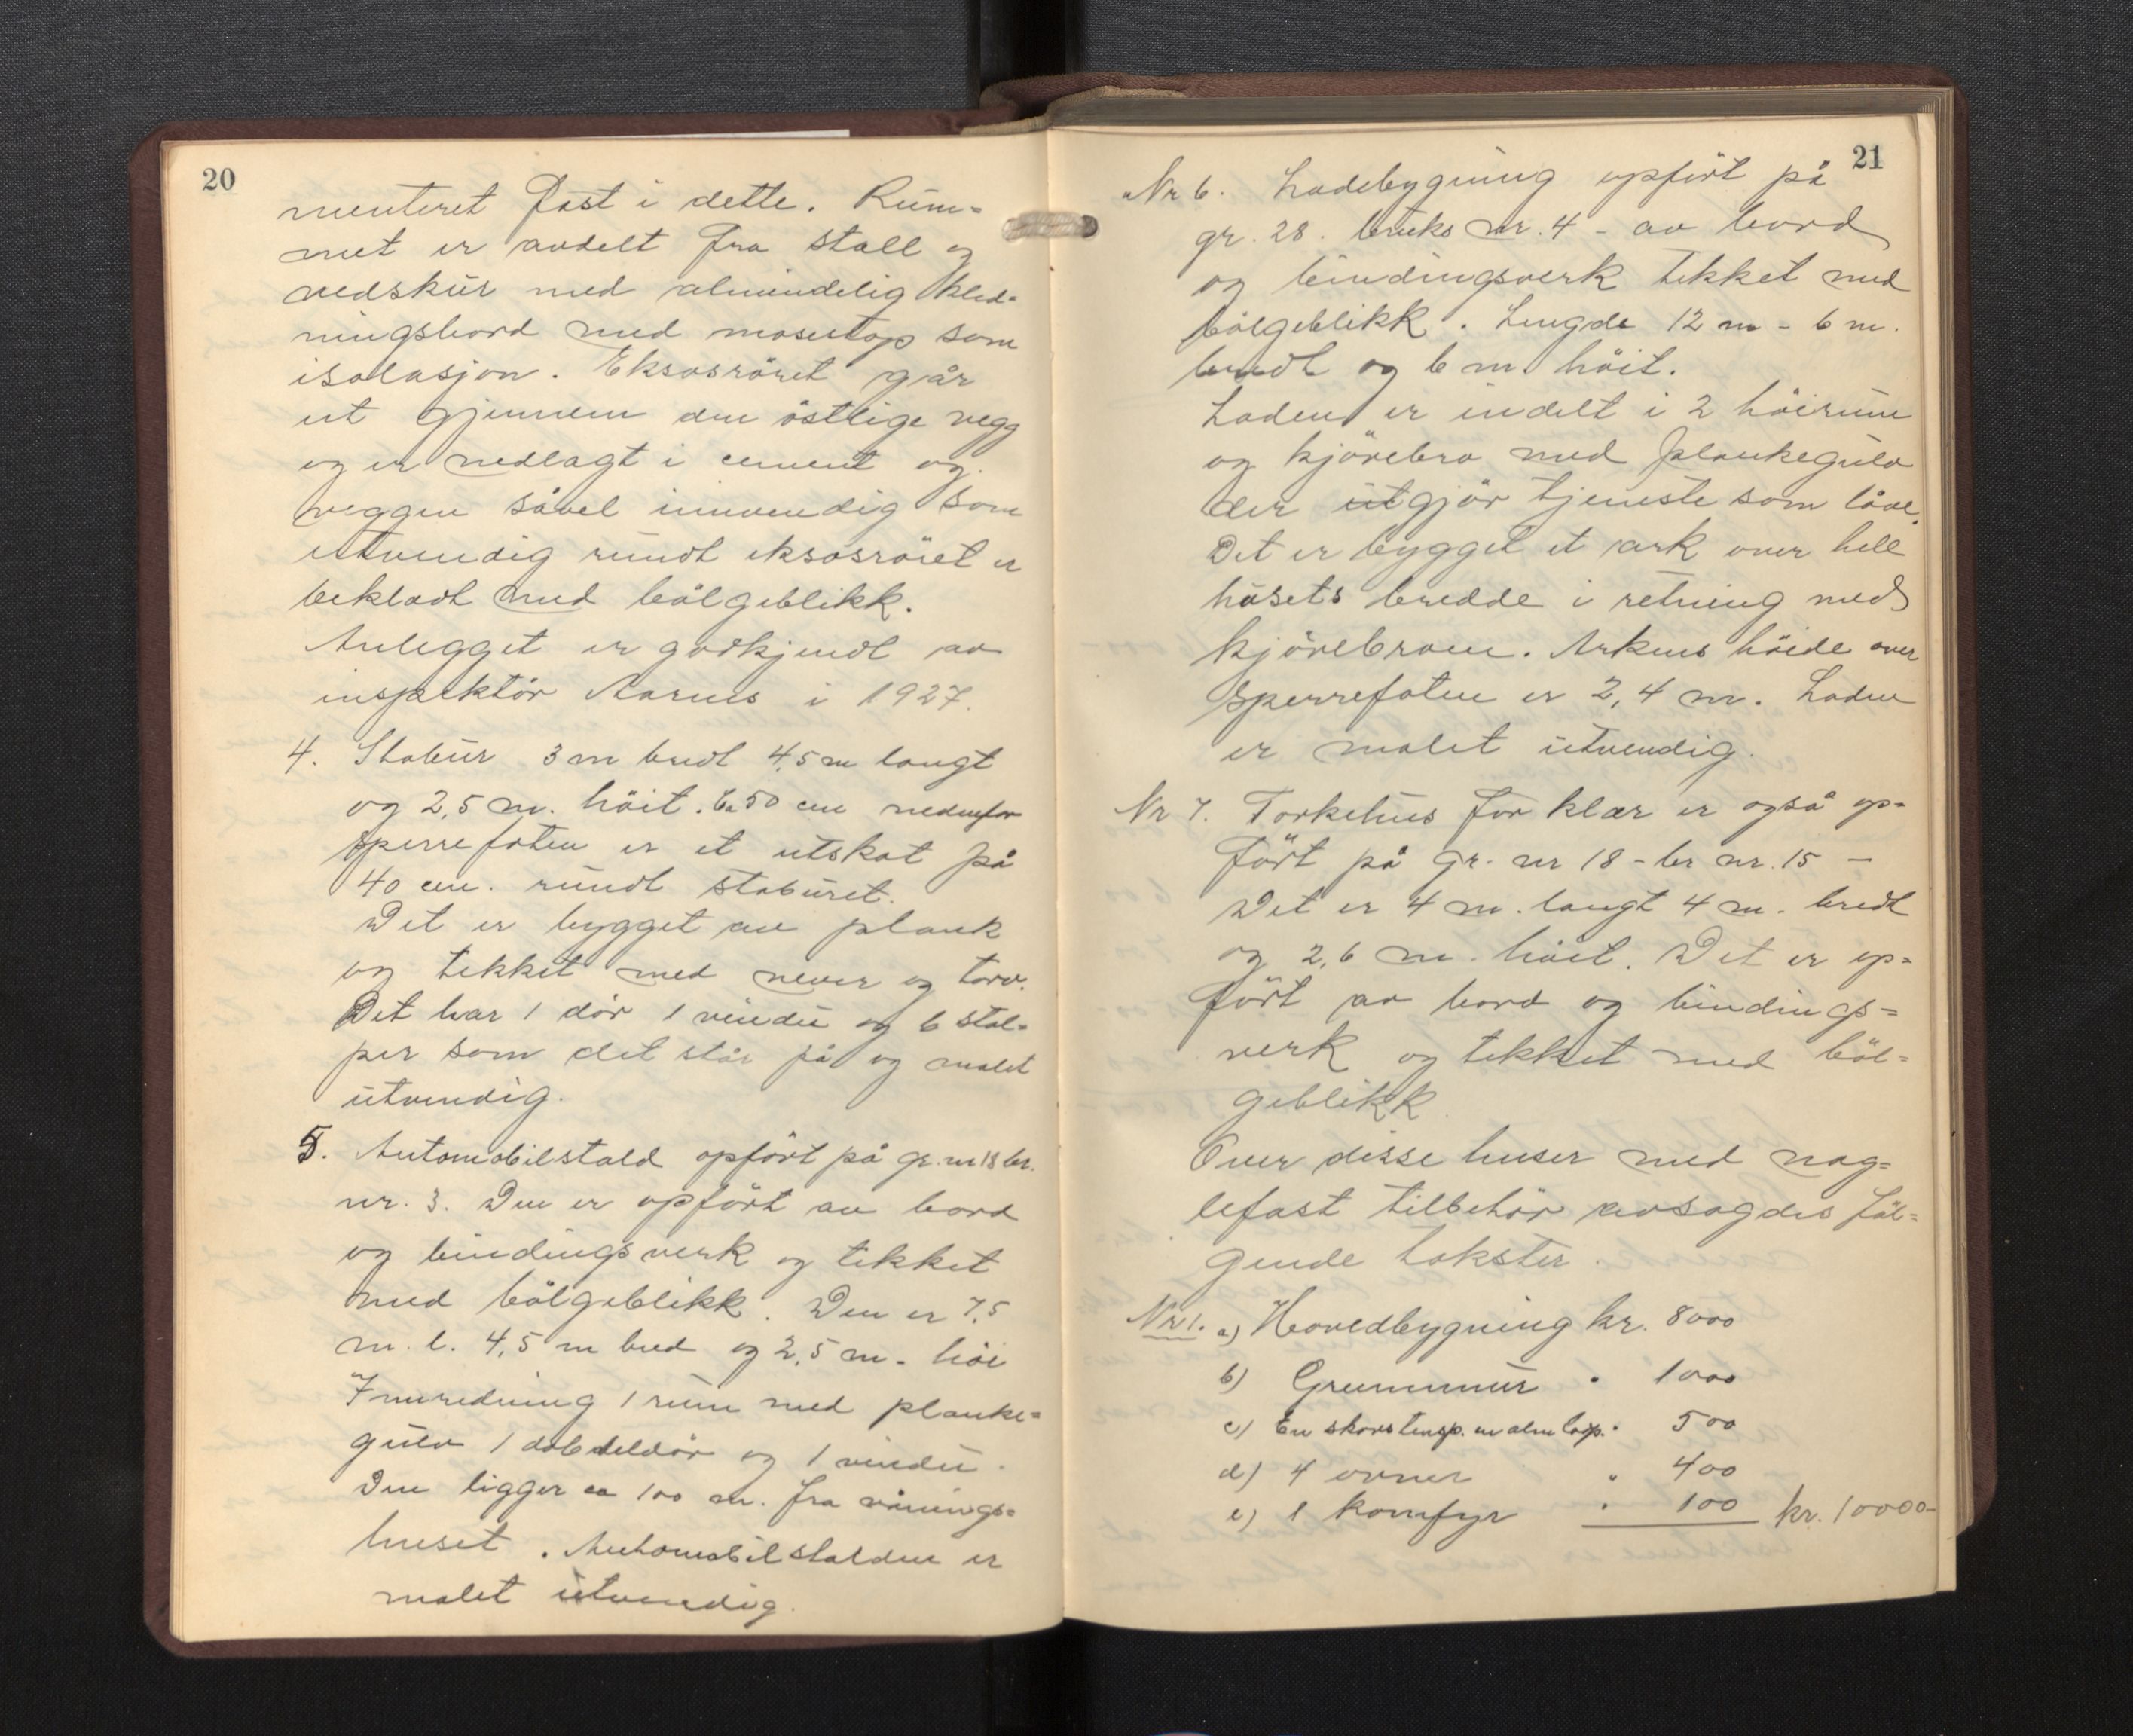 20
menteret fast i dette. Rum-
met er avdelt fra stall og
vedskur med almindelig kled-
ningsbord med mosestop som
isolasjon. Eksosröret går
ut gjennem den östlige vegg
og er nedlagt i cement og
veggen såvel innvendig som
utvendig rundt eksosröret er
bekladt med bölgeblikk.
Anlegget er godkjendt av
inspektör Aarnes i 1927.
4. Stabur 3 m bredt 4,5 m langt
og 2,5 m. höit. Ca 50 cm nedenfor
sperrefoten er et utskot på
40 cm. rundt staburet.
Det er bygget av plank
og tekket med never og torv.
Det har 1 dör 1 vindu og 6 stol-
per som det står på og malet
utvendig.
5. Automobilstald opfört på gr. nr 18 br.
nr. 3. Den er opfört av bord
og bindingsverk og tekket
med bölgeblikk. Den er 7,5
m. l. 4,5 m bred og 2,5 m. höi
Innredning 1 rum med planke-
gulv 1 dobbeldör og 1 vindu.
Den ligger ca 100 m. fra vånings-
huset. Automobilstalden er
malet utvendig.
21
Nr 6. Ladebygning opfört på
gr. 28. bruks nr. 4 - av bord
og bindingsverk tekket med
bölgeblikk. Lengde 12 m - 6 m.
bredt og 6 m höit.
Laden er indelt i 2 höirum
og kjörebro med plankegulv
der utgjör tjeneste som låve.
Det er bygget et ark over hele
husets bredde i retning med
kjörebroen. Arkens höide over
sperrefoten er 2,4 m. Laden
er malet utvendig.
Nr 7. Torkehus for klær er også op-
fört på gr. nr 18 - br nr. 15 -
Det er 4 m. langt 4 m. bredt
og 2,6 m. höit. Det er op-
fört av bord og bindings-
verk og tekket med böl-
geblikk.
Over disse huser med nag-
lefast tilbehör avsagdes föl-
gende takster.
Nr 1. a) Hovedbygning kr. 8000
b) Grunnmur " 1000
c) En skorstensp. m alm löp. " 500
d) 4 ovner " 400
e) 1 komfyr " 100 kr. 10000-